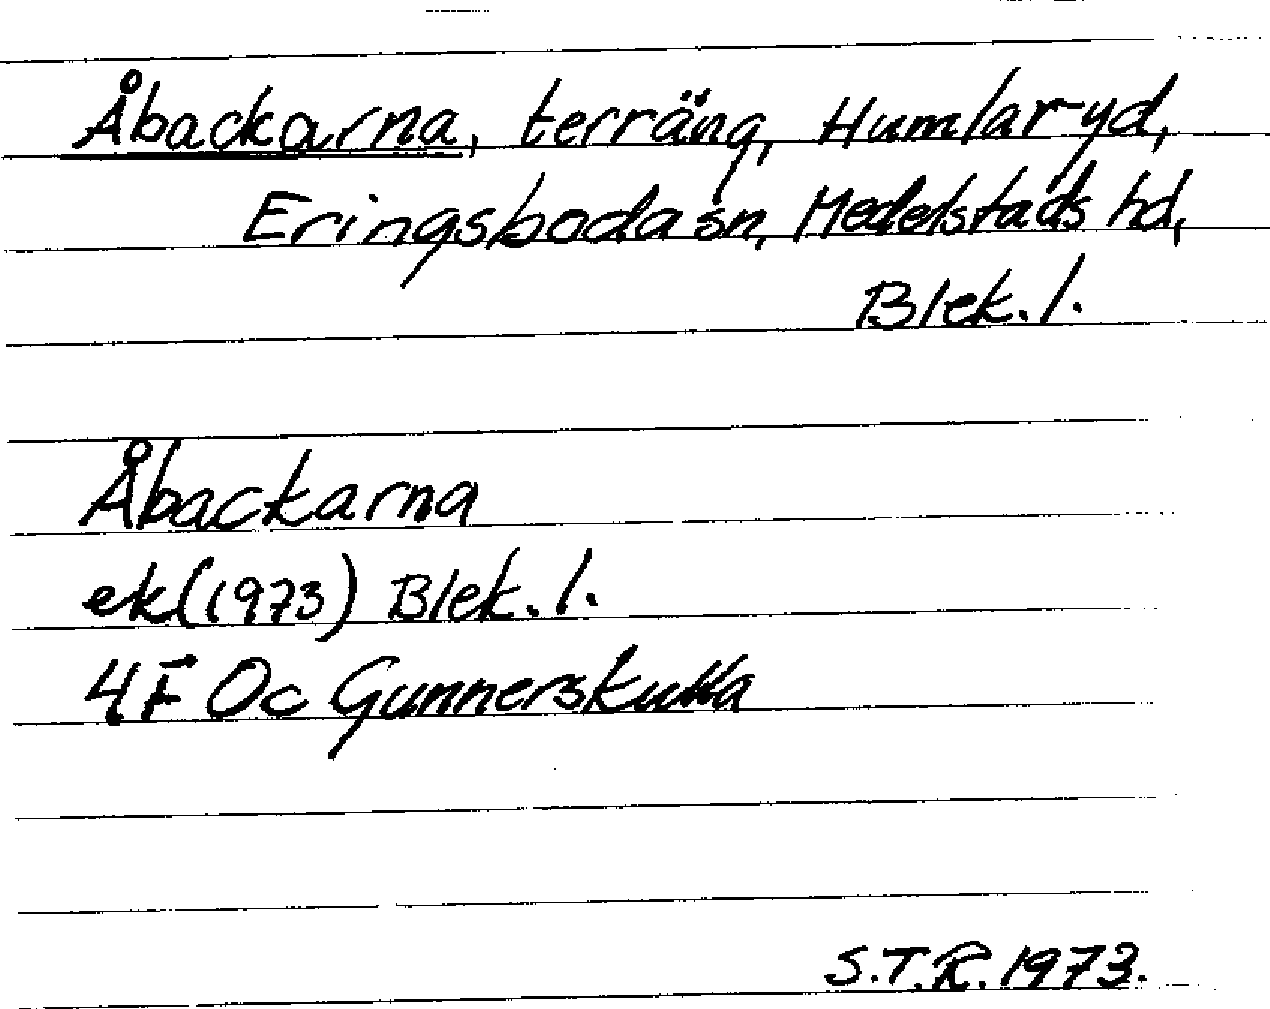 Åbackarna, terräng, Humlaryd,
Eringsboda sn, Medelstads hd,
Blek. l.
Åbackarna
ek (1973) Blek. l.
4F Oc Gunnerskulla
S.T.R. 1973.